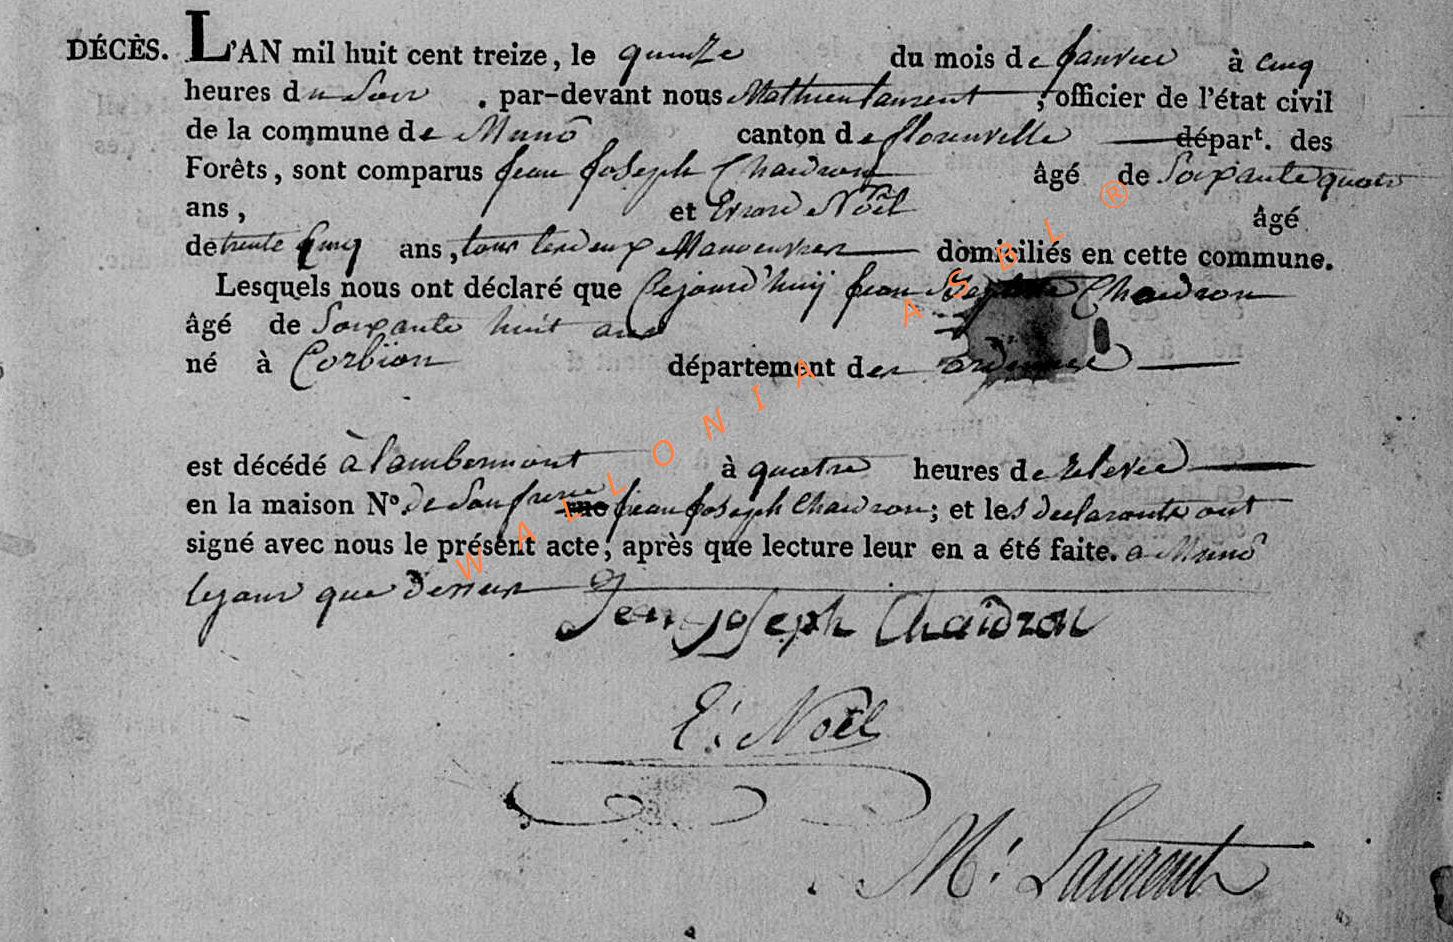 DÉCÈS. L'AN mil huit cent treize, le quinze du mois de Janvier à cinq
heures du Soir . par-devant nous Mathieu Laurent, officier de l'état civil
de la commune de Muno canton de florenville départ. des
Forêts, sont comparus Jean Joseph Chaidron âgé de Soixante quatre
ans, et Erard Noël âgé
de trente Cinq ans, tous les deux Manoeuvres domiciliés en cette commune.
Lesquels nous ont déclaré que Cejourd'huy Jean Chaidron
âgé de Soixante huit ans
né à Corbion département des ardennes
est décédé à lambermont à quatre heures de relevée
en la maison No. de Son frere Jean Joseph Chaidron; et les declarants ont
signé avec nous le présent acte, après que lecture leur en a été faite. a Muno
lejour que Dessus
Jean Joseph Chaidron
E: Noël
M: Laurent
WALLONIA ASBL ®